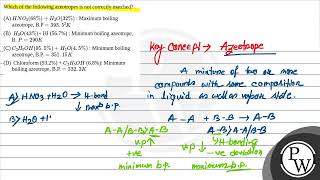 Which of the following azeotropes is not correctly matched?
(A) HNO₃(68%) + H₂O(32%) : Maximum boiling
azeotrope, B.P = 393. 5K
(B) H₂O(43%)+ HI (56.7%) : Minimum boiling azeotrope,
B. P = 290K
(C) C₂H₅OH(95. 5%) + H₂O(4. 5%) : Minimum boiling
azeotrope, B.P = 351. 15K
(D) Chloroform (93.2%) + C₂H₅OH (6.8%): Minimum
boiling azeotrope, B.P. = 332. 3K
Key Concept → Azeotrope
A mixture of two or more
compounds with same composition
in liquid as well as vapour state.
A) HNO₃+H₂O → H-bond
↓
maxm b.p
B) H₂O+
A – A + B – B → A – B
A-A/B-B>A-B
A-B>A-A, B-B
V.P↑
+ve
minimum b.p.
V.P ↓
H-bonding
-ve deviation
maximum b.p.
PW